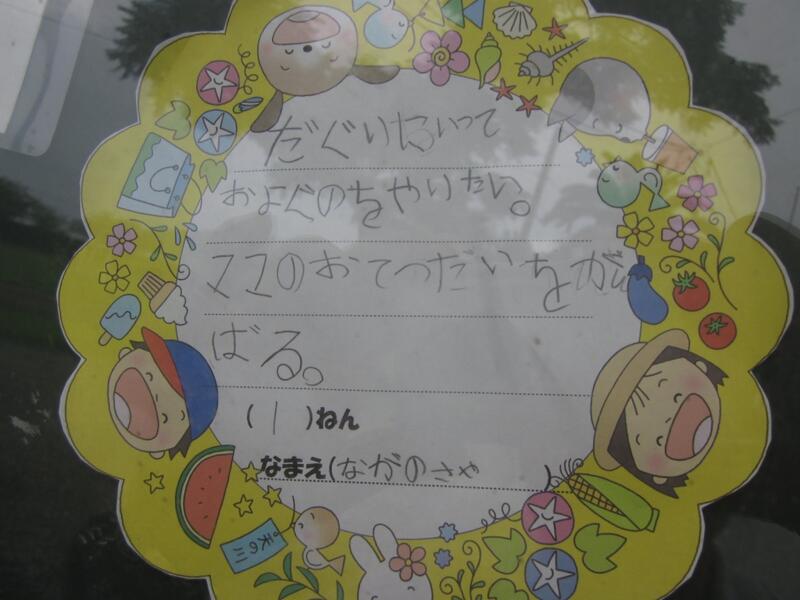 だぐいたいって
およぐのをやりたい。
ママのおてつだいをがん
ばる。
(1)ねん
なまえ(ながのさや)
天の川